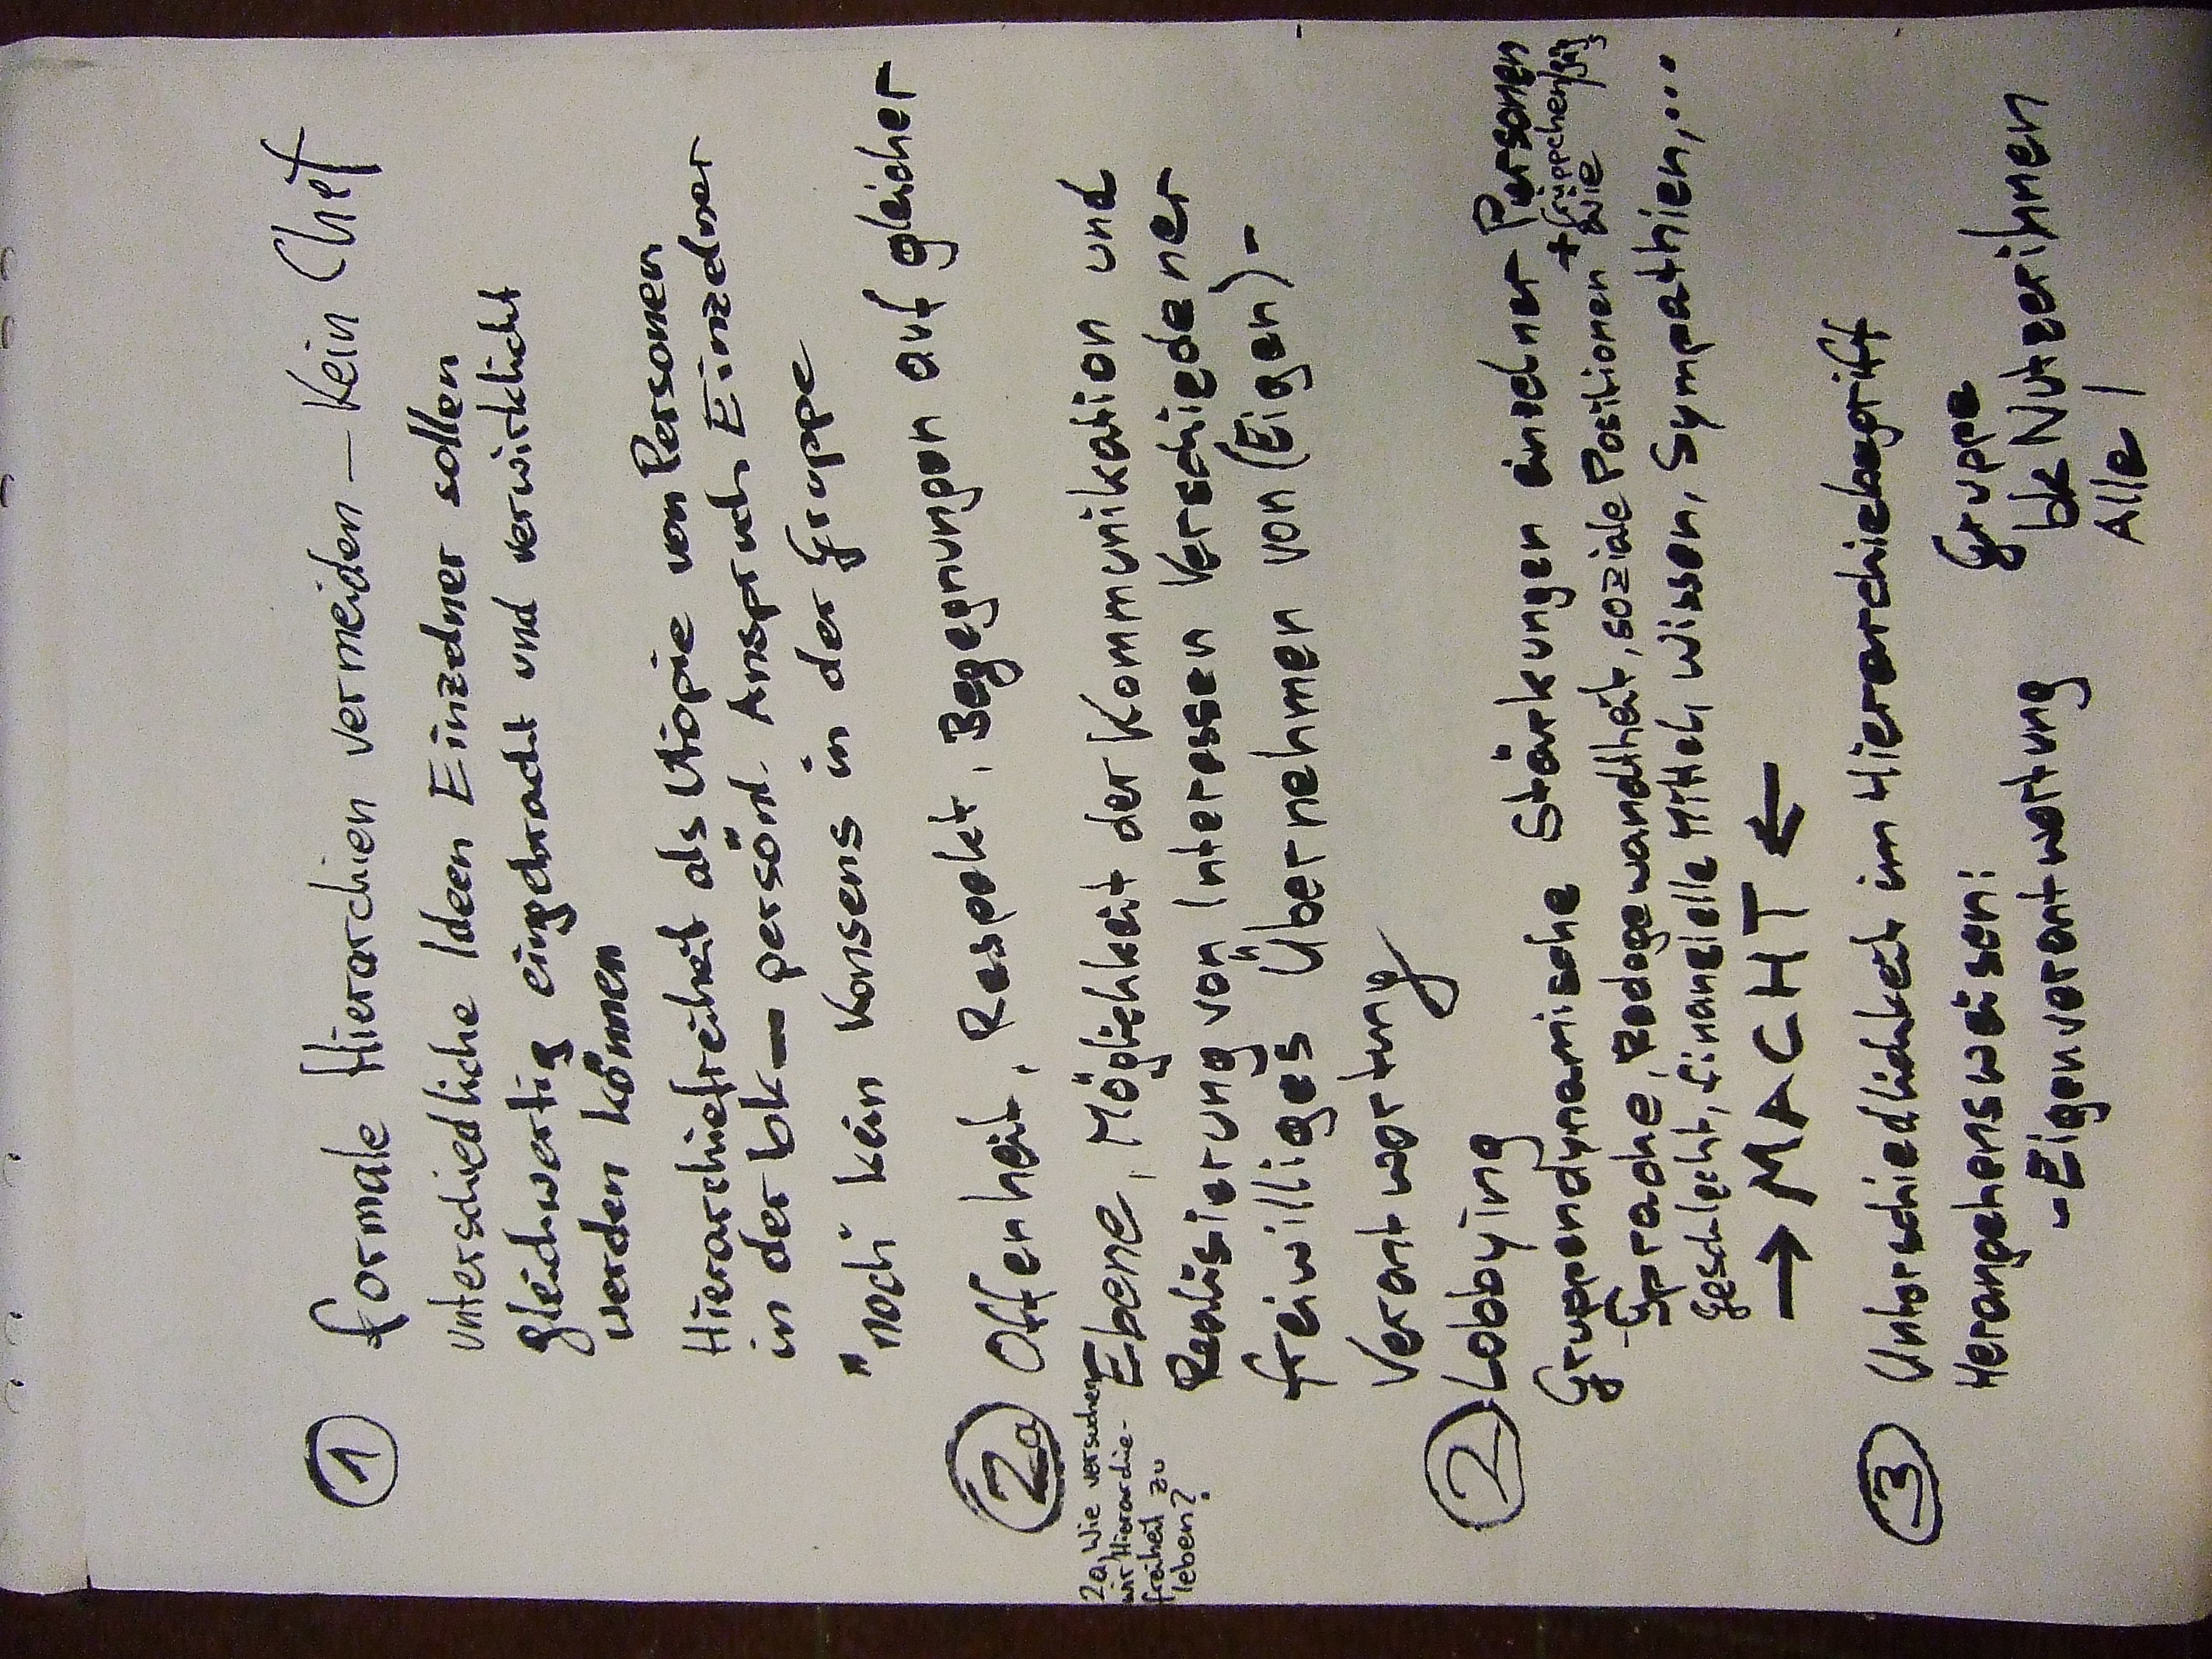 ① formale Hierarchien vermeiden – Kein Chef
unterschiedliche Ideen Einzelner sollen
gleichwertig eingebracht und verwirklicht
werden können
Hierarchiefreiheit als Utopie von Personen
in der bk – persönl. Anspruch Einzelner
"noch" kein Konsens in der Gruppe
②a Offenheit, Respekt, Begegnungen auf gleicher
2a, Wie versuchen
wir Hierarchie-
freiheit zu
leben?
Ebene, Möglichkeit der Kommunikation und
Realisierung von Interessen Verschiedener
freiwilliges Übernehmen von (Eigen)-
Verantwortung
② Lobbying
Gruppendynamische Stärkungen einzelner Personen
+ Grüppchen
- Sprache, Redegewandtheit, soziale Positionen wie
Geschlecht, finanzielle Mittel, Wissen, Sympathien,...
→ MACHT ←
③ Unterschiedlichkeit im Hierarchiebegriff
Herangehensweisen: Gruppe
- Eigenverantwortung bk NutzeriNnen
Alle /